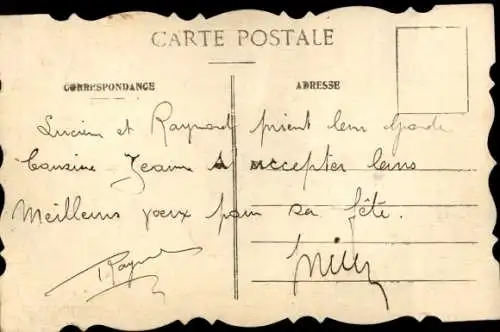 CARTE POSTALE
CORRESPONDANCE
ADRESSE
Lucien et Raymond prient leur Grande
Cousine Jeanne d'accepter leurs
Meilleurs voeux pour sa fête.